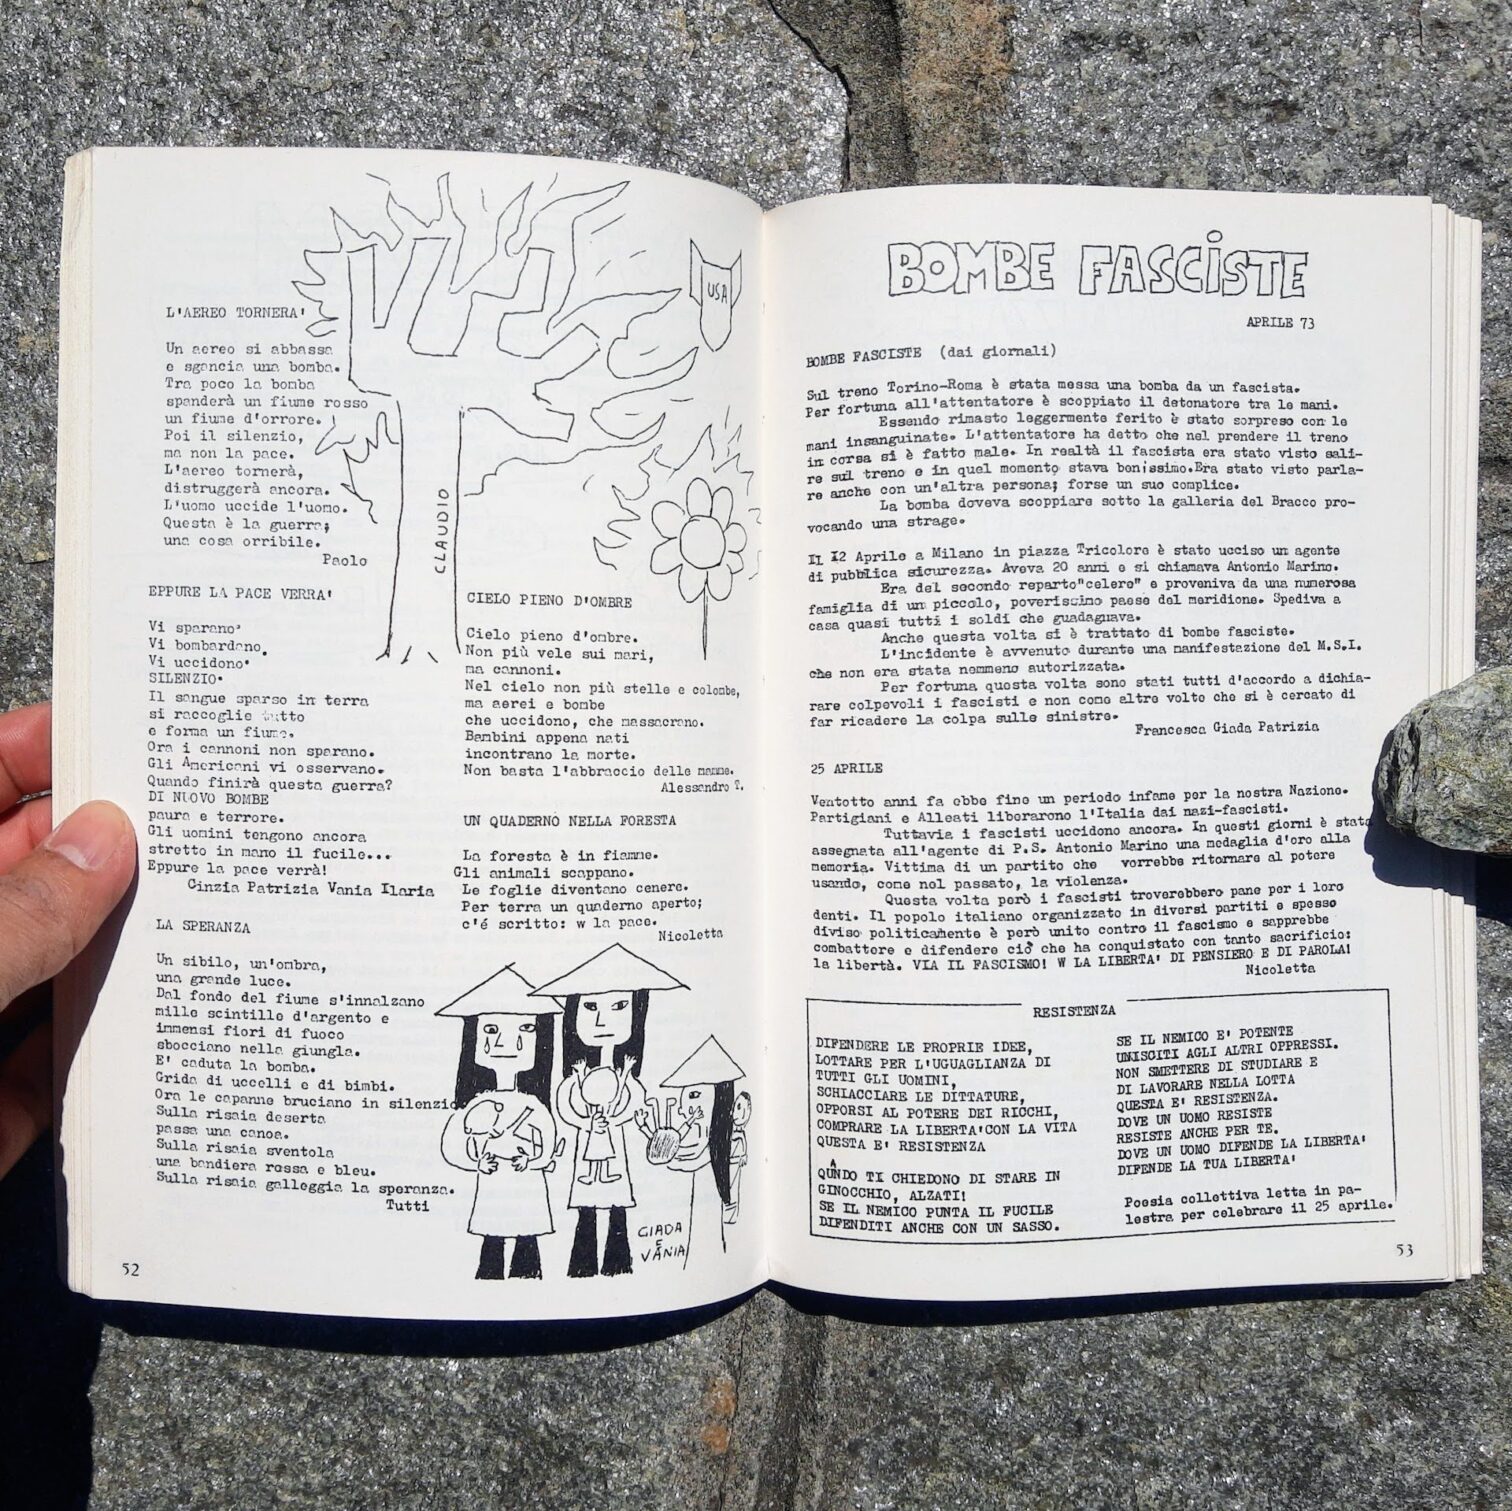 USA
CLAUDIO
L'AEREO TORNERA'
Un aereo si abbassa
e sgancia una bomba.
Tra poco la bomba
spanderà un fiume rosso
un fiume d'orrore.
Poi il silenzio,
ma non la pace.
L'aereo tornerà,
distruggerà ancora.
L'uomo uccide l'uomo.
Questa è la guerra;
una cosa orribile.
Paolo
EPPURE LA PACE VERRA'
Vi sparano'
Vi bombardano.
Vi uccidono'
SILENZIO.
Il sangue sparso in terra
si raccoglie tutto
e forma un fiume.
Ora i cannoni non sparano.
Gli Americani vi osservano.
Quando finirà questa guerra?
DI NUOVO BOMBE
paura e terrore.
Gli uomini tengono ancora
stretto in mano il fucile...
Eppure la pace verrà!
Cinzia Patrizia Vania Ilaria
LA SPERANZA
Un sibilo, un'ombra,
una grande luce.
Dal fondo del fiume s'innalzano
mille scintille d'argento e
immensi fiori di fuoco
sbocciano nella giungla.
E' caduta la bomba.
Grida di uccelli e di bimbi.
Ora le capanne bruciano in silenzio
Sulla risaia deserta
passa una canoa.
Sulla risaia sventola
una bandiera rossa e bleu.
Sulla risaia galleggia la speranza.
Tutti
CIELO PIENO D'OMBRE
Cielo pieno d'ombre.
Non più vele sui mari,
ma cannoni.
Nel cielo non più stelle e colombe,
ma aerei e bombe
che uccidono, che massacrano.
Bambini appena nati
incontrano la morte.
Non basta l'abbraccio delle mamme.
Alessandro T.
UN QUADERNO NELLA FORESTA
La foresta è in fiamme.
Gli animali scappano.
Le foglie diventano cenere.
Per terra un quaderno aperto;
c'é scritto: w la pace.
Nicoletta
GIADA
E
VANIA
52
BOMBE FASCiSTE
APRILE 73
BOMBE FASCISTE (dai giornali)
Sul treno Torino-Roma è stata messa una bomba da un fascista.
Per fortuna all'attentatore è scoppiato il detonatore tra le mani.
Essendo rimasto leggermente ferito è stato sorpreso con le
mani insanguinate. L'attentatore ha detto che nel prendere il treno
in corsa si è fatto male. In realtà il fascista era stato visto sali-
re sul treno e in quel momento stava benissimo.Era stato visto parla-
re anche con un'altra persona; forse un suo complice.
La bomba doveva scoppiare sotto la galleria del Bracco pro-
vocando una strage.
Il I2 Aprile a Milano in piazza Tricolore è stato ucciso un agente
di pubblica sicurezza. Aveva 20 anni e si chiamava Antonio Marino.
Era del secondo reparto"celere" e proveniva da una numerosa
famiglia di un piccolo, poverissimo paese del meridione. Spediva a
casa quasi tutti i soldi che guadagnava.
Anche questa volta si è trattato di bombe fasciste.
L'incidente è avvenuto durante una manifestazione del M.S.I.
che non era stata nemmeno autorizzata.
Per fortuna questa volta sono stati tutti d'accordo a dichia-
rare colpevoli i fascisti e non come altre volte che si è cercato di
far ricadere la colpa sulle sinistre.
Francesca Giada Patrizia
25 APRILE
Ventotto anni fa ebbe fine un periodo infame per la nostra Nazione.
Partigiani e Alleati liberarono l'Italia dai nazi-fascisti.
Tuttavia i fascisti uccidono ancora. In questi giorni è stata
assegnata all'agente di P.S. Antonio Marino una medaglia d'oro alla
memoria. Vittima di un partito che vorrebbe ritornare al potere
usando, come nel passato, la violenza.
Questa volta però i fascisti troverebbero pane per i loro
denti. Il popolo italiano organizzato in diversi partiti e spesso
diviso politicamente è però unito contro il fascismo e saprebbe
combattere e difendere ciò che ha conquistato con tanto sacrificio:
la libertà. VIA IL FASCISMO! W LA LIBERTA' DI PENSIERO E DI PAROLA!
Nicoletta
RESISTENZA
DIFENDERE LE PROPRIE IDEE,
LOTTARE PER L'UGUAGLIANZA DI
TUTTI GLI UOMINI,
SCHIACCIARE LE DITTATURE,
OPPORSI AL POTERE DEI RICCHI,
COMPRARE LA LIBERTA'CON LA VITA
QUESTA E' RESISTENZA
QUANDO TI CHIEDONO DI STARE IN
GINOCCHIO, ALZATI!
SE IL NEMICO PUNTA IL FUCILE
DIFENDITI ANCHE CON UN SASSO.
SE IL NEMICO E' POTENTE
UNISCITI AGLI ALTRI OPPRESSI.
NON SMETTERE DI STUDIARE E
DI LAVORARE NELLA LOTTA
QUESTA E' RESISTENZA.
DOVE UN UOMO RESISTE
RESISTE ANCHE PER TE.
DOVE UN UOMO DIFENDE LA LIBERTA'
DIFENDE LA TUA LIBERTA'
Poesia collettiva letta in pa-
lestra per celebrare il 25 aprile.
53